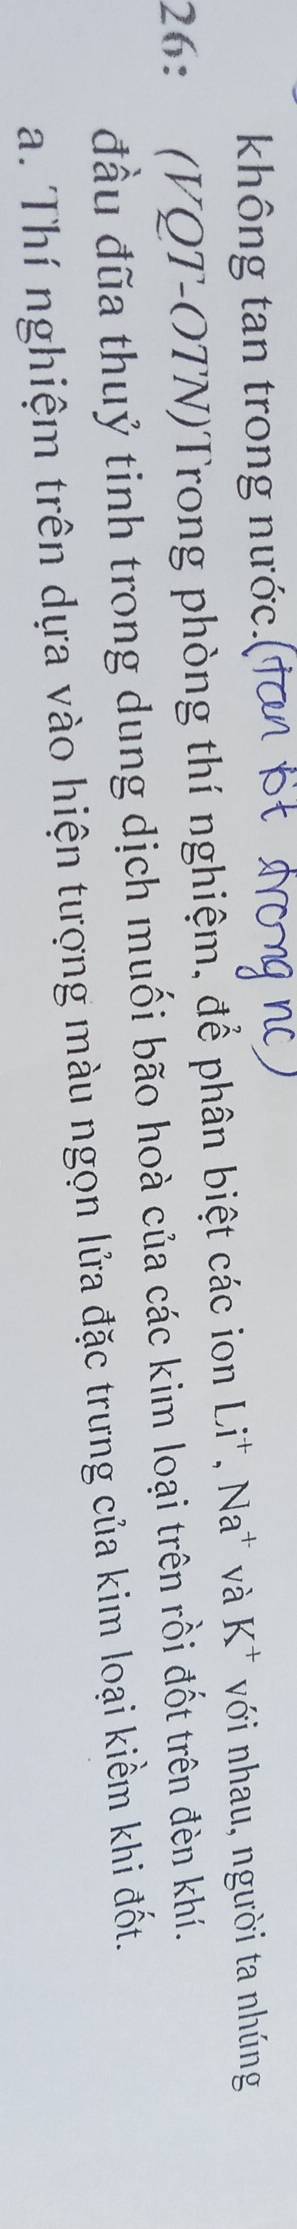 không tan trong nước. (tan tốt trong nc)
26: (VQT-OTN)Trong phòng thí nghiệm, để phân biệt các ion Li⁺, Na⁺ và K⁺ với nhau, người ta nhúng
đầu đũa thuỷ tinh trong dung dịch muối bão hoà của các kim loại trên rồi đốt trên đèn khí.
a. Thí nghiệm trên dựa vào hiện tượng màu ngọn lửa đặc trưng của kim loại kiềm khi đốt.